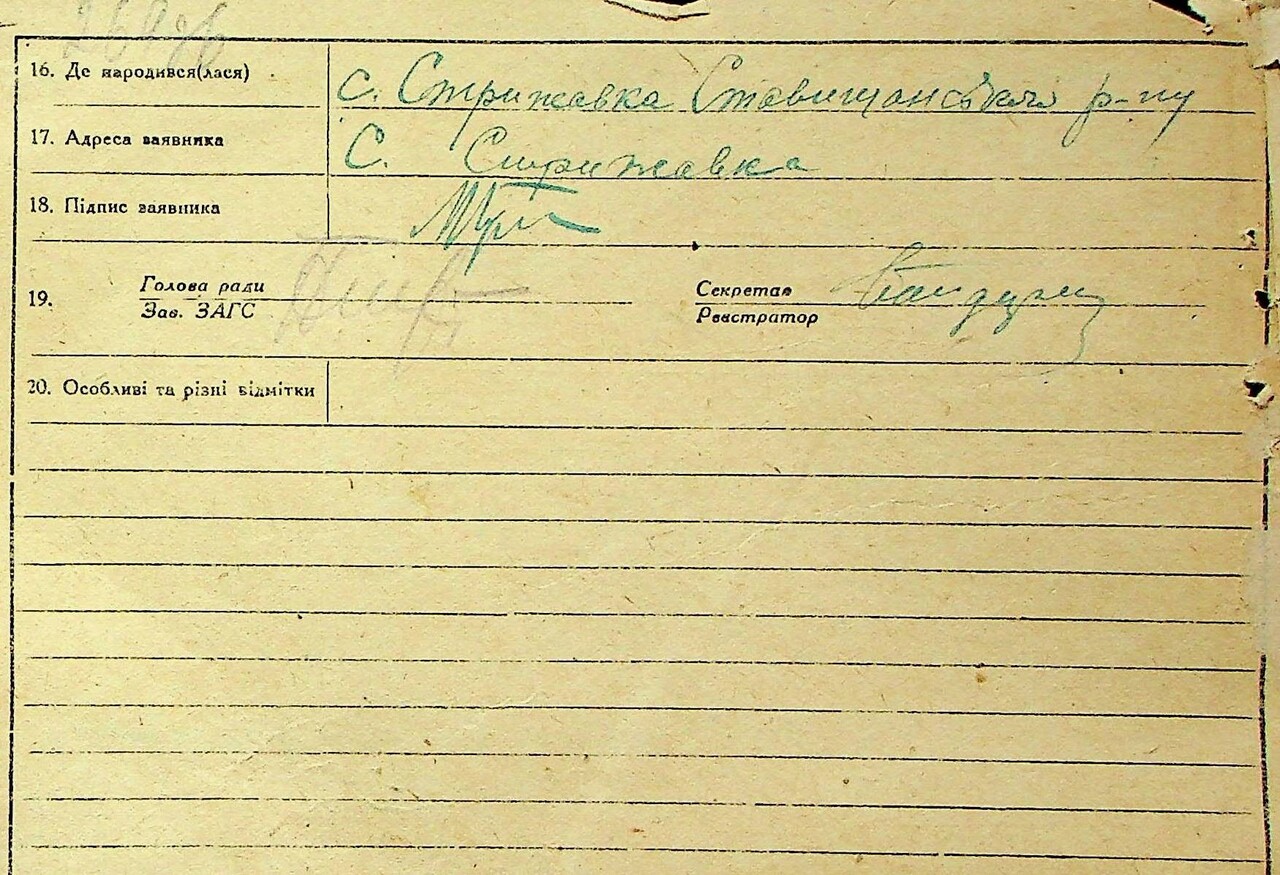 16. Де народився(лася) с. Стрижавка Ставищанського р-ну
17. Адреса заявника С. Стрижавка
18. Підпис заявника
19. Голова ради
Зав. ЗАГС
Секретар
Реєстратор
20. Особливі та різні відмітки